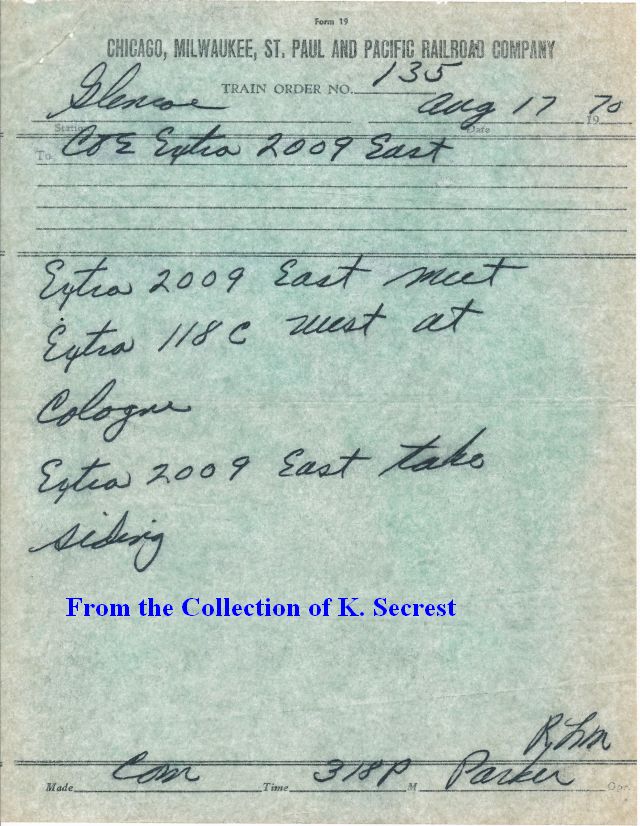 Form 19
CHICAGO, MILWAUKEE, ST. PAUL AND PACIFIC RAILROAD COMPANY
TRAIN ORDER NO. 135
Glencoe Aug 17 1970
Station Date
To C&E Extra 2009 East
Extra 2009 East meet
Extra 118 C West at
Cologne
Extra 2009 East take
siding
From the Collection of K. Secrest
Made Com Time 318P M Parker Opr.